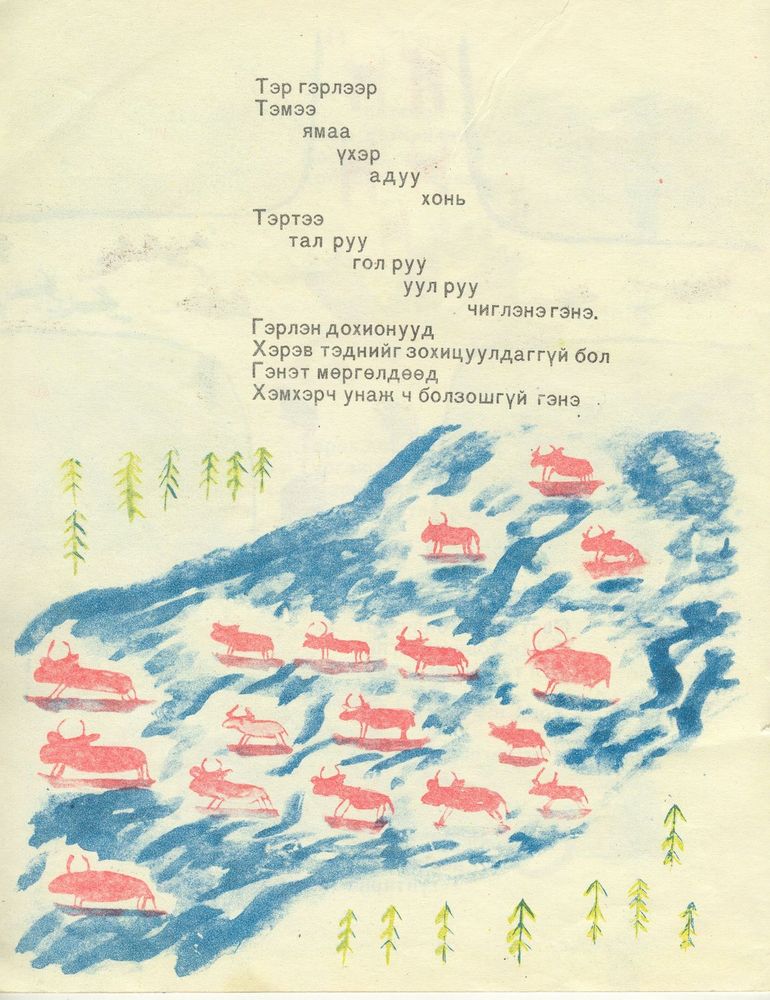 Тэр гэрлээр
Тэмээ
ямаа
үхэр
адуу
хонь
Тэртээ
тал руу
гол руу
уул руу
чиглэнэ гэнэ.
Гэрлэн дохионууд
Хэрэв тэднийг зохицуулдаггүй бол
Гэнэт мөргөлдөөд
Хэмхэрч унаж ч болзошгүй гэнэ